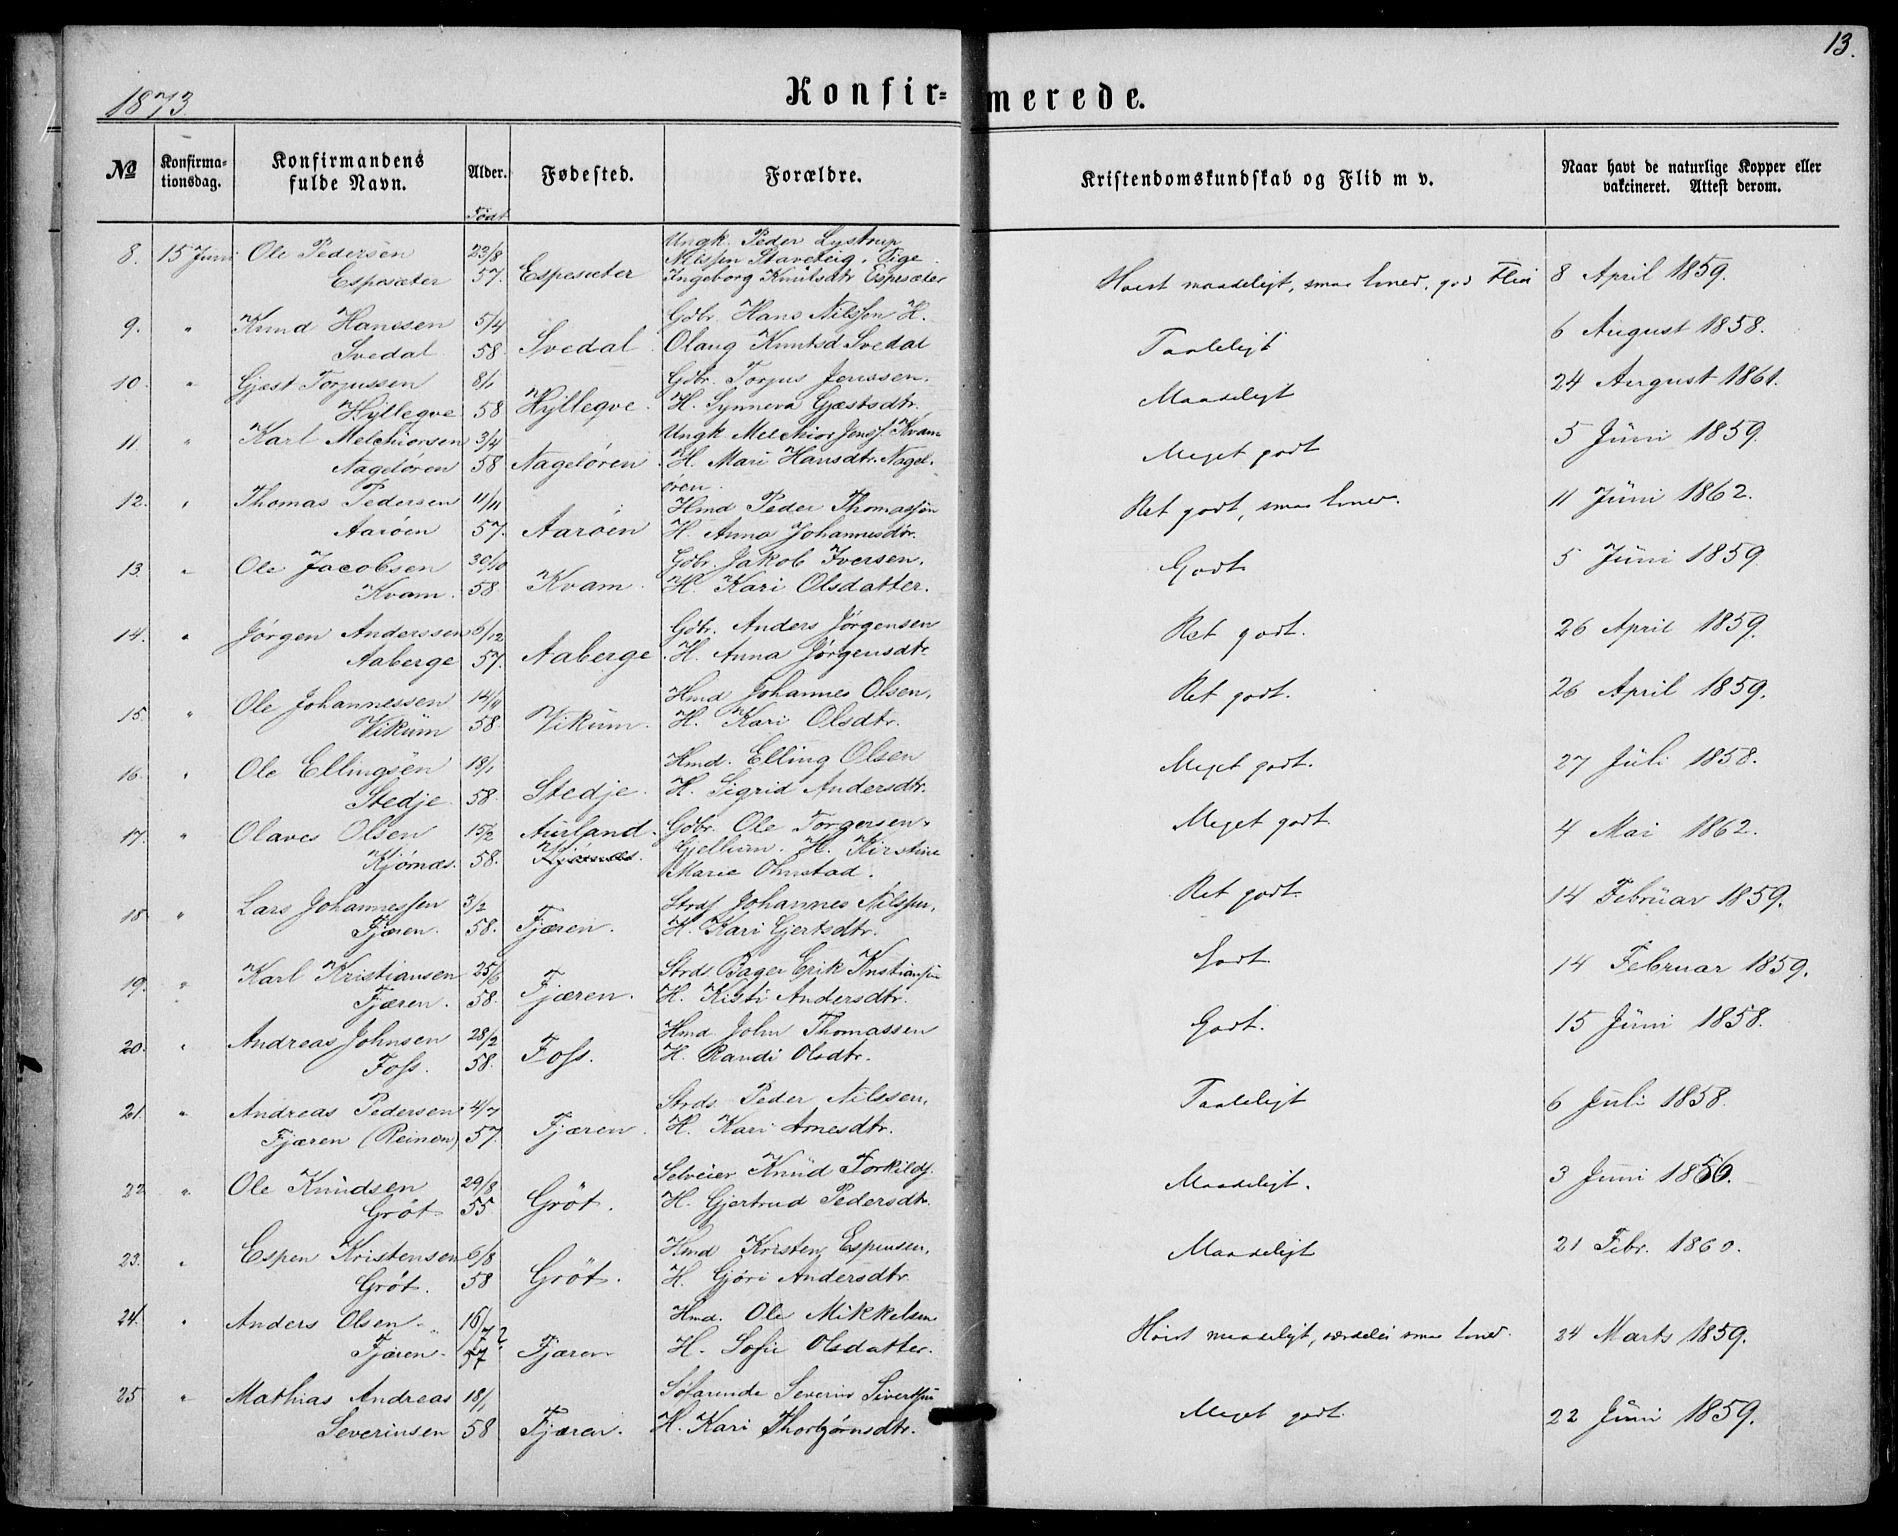 13.
1873.
Konfir= merede.
№ Konfirma= tionsdag. Konfirmandens fulde Navn. Alder. Fødested. Forældre. Kristendomskundskab og Flid m v. Naar havt de naturlige Kopper eller vakcineret. Attest derom.
Født
Ungk. Peder Lystrup
8. 15 Juni Ole Pedersen 23/8 Nilssen Staveteig, Pige
Espesæter 57. Espesæter Ingeborg Knutsdtr Espesæter Høist maadeligt, smaa Evner, god Flid 8 April 1859.
9. " Knud Hanssen 5/4 Gdbr. Hans Nilssen H. 6 August 1858.
Svedal 58. Svedal Olaug Knutsd Svedal Taaleligt
10. " Gjest Torjussen 8/1 Gdbr. Torjus Jenssen. 24 August 1861.
Hyllegve 58 Hyllegve. H. Synneva Gjestsdtr. Maadeligt
11. " Karl Melchiorsen 3/4 Ungk Melchior Jenss. Kvam 5 Juni 1859.
Nageløren 58 Nageløren H. Mari Hansdtr. Nagel- Meget godt
øren.
12. " Thomas Pedersen 11/11 Hmd Peder Thomassøn 11 Juni 1862.
Aarøen 57. Aarøen H. Anna Johannesdtr. Ret godt, smaa Evner.
13. " Ole Jacobsen 30/10 Gdbr. Jakob Iversen. 5 Juni 1859.
Kvam. 58. Kvam. H. Kari Olsdatter. Godt
14. " Jørgen Anderssen 6/12 Gdbr. Anders Jørgensen 26 April 1859.
Aaberge 57. Aaberge H. Anna Jørgensdtr Ret godt.
Ole Johannessen 14/11 Hmd Johannes Olsen. Ret godt. 26 April 1859.
15. " Vikum 58. Vikum. H. Kari Olsdtr.
16. " Ole Ellingsen 18/1 Hmd. Elling Olsen 27 Juli 1858.
Stedje 58. Stedje. H. Sigrid Andersdtr. Meget godt.
17. " Olaves Olsen 15/2 Aurland. Gdbr. Ole Torgersen Meget godt 4 Mai 1862.
Kjørnæs. 58. Kjørnæs. Gjellum. H. Kirstine
Marie Ohnstad.
18 " Lars Johannessen 3/2 Strds Johannes Nilssen, Ret godt. 14 Februar 1859.
Fjæren. 58. Fjæren. H. Kari Gjertsdtr.
19. " Karl Kristiansen 25/6 Strds. Bager Erik Kristiansen Godt 14 Februar 1859.
Fjæren. 58. Fjæren. H. Kisti Andersdtr.
20. " Andreas Johnsen 28/2 Hmd John Thomassen Godt. 15 Juni 1858.
Foss. 58. Foss. H. Randi Olsdtr.
21. " Andreas Pedersen 4/7 Strds Peder Nilssen. Taaleligt 6 Juli 1858.
Fjæren (Reinen) 57. Fjæren. H. Kari Arnesdtr.
22 " Ole Knudsen 29/8 Selveier Knud Torkilds. Maadeligt. 3 Juni 1856.
Grøt 55 Grøt. H. Gjertrud Pedersdtr.
23. " Espen Kristensen 6/8 Hmd Kristen Espensen. Maadeligt 21 Febr. 1860.
Grøt. 58 Grøt. H. Gjøri Andersdtr.
24. " Anders Olsen 16/7 ? Hmd. Ole Mikkelsen
Fjæren. 57 Fjæren H. Sofie Olsdatter. Høist maadeligt, særdeles smaa Evner. 24 Marts 1859.
25. " Mathias Andreas 18/1 Søfarende Severin Sivertsen
Severinsen 58 Fjæren. H. Kari Thorbjørnsdtr. Meget godt 22 Juni 1859.